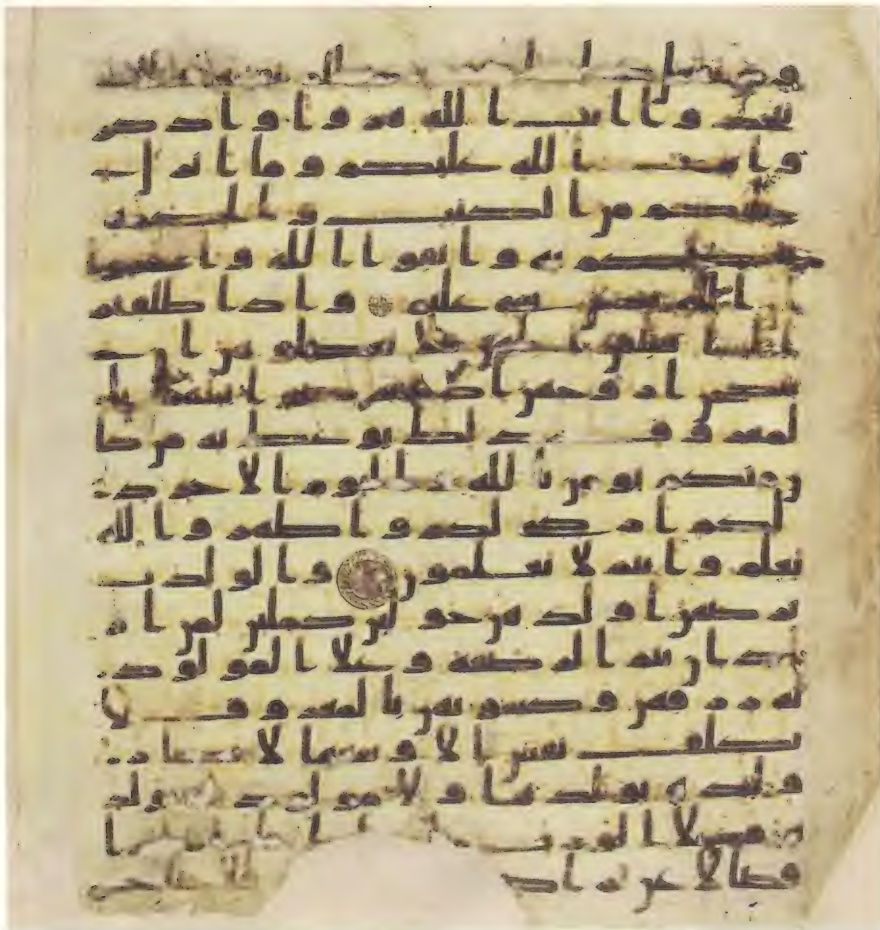 تتخذوا ايت الله هزوا واذكر
وا نعمت الله عليكم وما انزل
عليكم من الكتب والحكمة
يعظكم به واتقوا الله واعلموا
ان الله بكل شي عليم واذا طلقتم
النسا فبلغن اجلهن فلا تعضلوهن ا
ن ينكحن ازوجهن اذا ترضوا بينهم با
لمعروف ذلك يوعظ به من كا
ن منكم يومن بالله واليوم الاخر ذ
لكم ازكى لكم واطهر والله
يعلم وانتم لا تعلمون والولدت
يرضعن اولدهن حولين كملين لمن ار
اد ان يتم الرضعة وعلى المولود
له رزقهن وكسوتهن بالمعروف لا
تكلف نفس الا وسعها لا تضار
ولدة بولدها ولا مولود له بولد
ه وعلى الورث
فصالا عن تراض فلا جناح